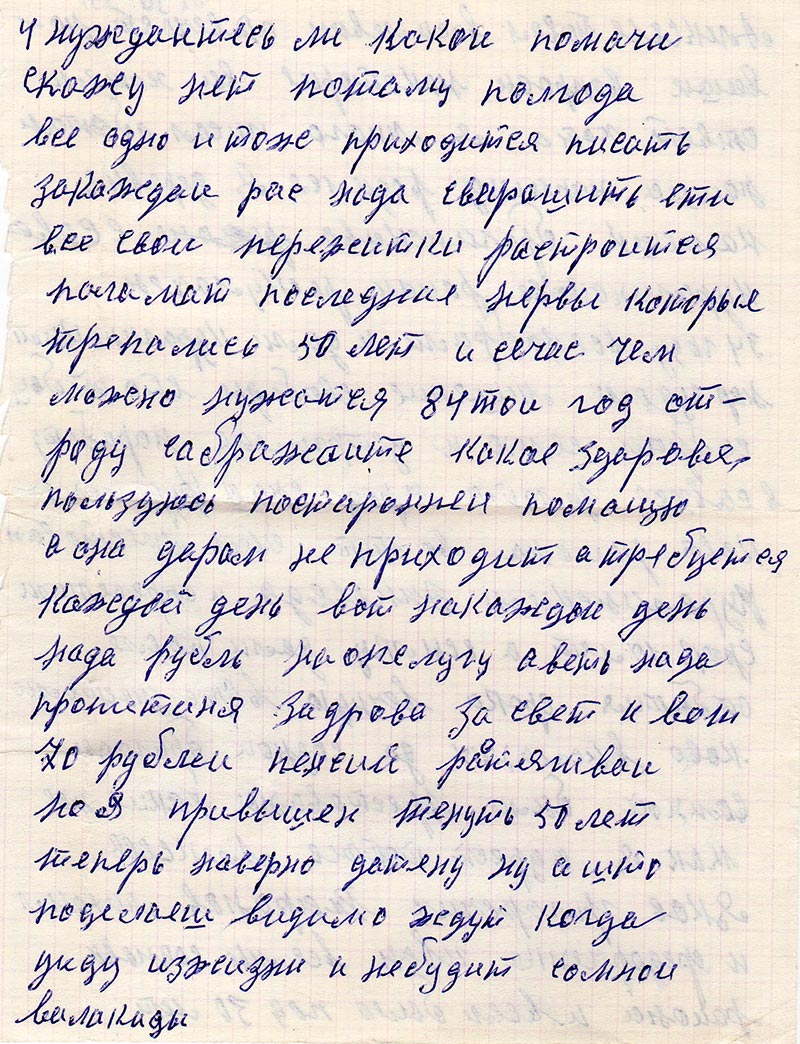 4 нуждаитесь ли какои помачи
скажу нет потаму полгода
все одно и тоже приходится писать
закаждаи рас нада сварашить ети
все свои пережитки растроится
паламат последние нервы которые
трепались 50 лет и сечас чем
можно нужатся 84 тои год от-
роду саображаите какое здаровя,
пользуюсь постароннеи помащю
а она даром не приходит а требуется
каждый день вот накаждыи день
нада рубль на опслугу а веть нада
пропитаня задрова за свет и вот
70 рублеи пенсии растягиваи
но я привышен тенуть 50 лет
теперь наверно датену ну а што
поделаеш видимо ждут когда
уиду изжизни и небудит сомнои
валакиды